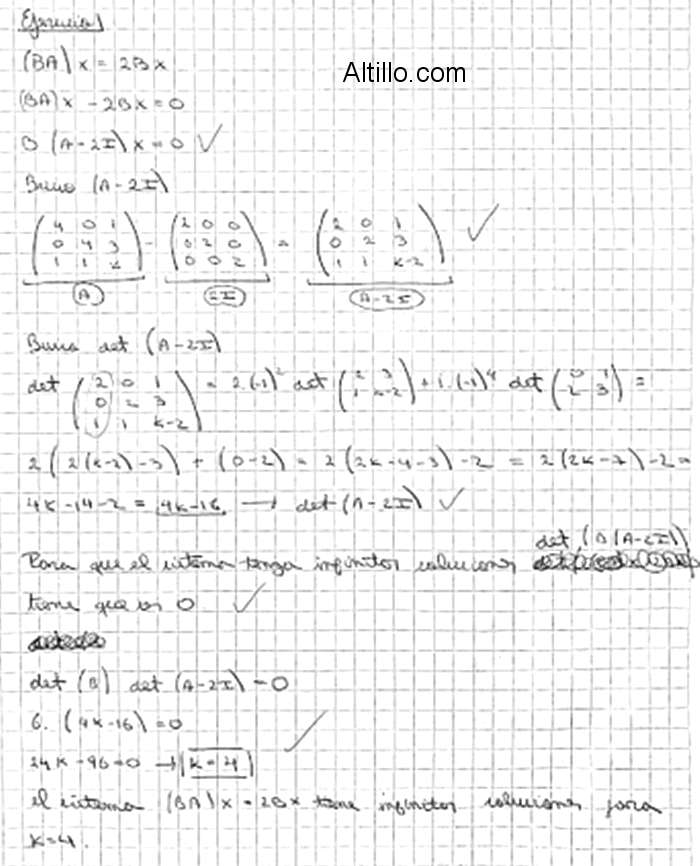 Ejercicio 1
Altillo.com
(BA)x = 2Bx
(BA)x - 2Bx = 0
B (A-2I) x = 0 ✓
Busco (A-2I)
( 4 0 1 ) - ( 2 0 0 ) = ( 2 0 1 )
( 0 4 3 ) ( 0 2 0 ) ( 0 2 3 ) ✓
( 1 1 k ) ( 0 0 2 ) ( 1 1 k-2 )
A 2I A-2I
Busco det (A-2I)
det ( 2 0 1 ) = 2.(-1)² det ( 2 3 ) + 1.(-1)⁴ det ( 0 1 ) =
( 0 2 3 ) ( 1 k-2 ) ( 2 3 )
( 1 1 k-2 )
2 ( 2(k-2) - 3 ) + (0-2) = 2 (2k-4-3) - 2 = 2(2k-7)-2 =
4k-14-2 = 4k-16 → det (A-2I) ✓
det (B(A-2I))
Para que el sistema tenga infinitas soluciones
tiene que ser 0 ✓
det (B) det (A-2I) = 0
6. (4k-16) = 0
24k - 96 = 0 → k = 4 ✓
el sistema (BA)x = 2Bx tiene infinitas soluciones para
k=4.